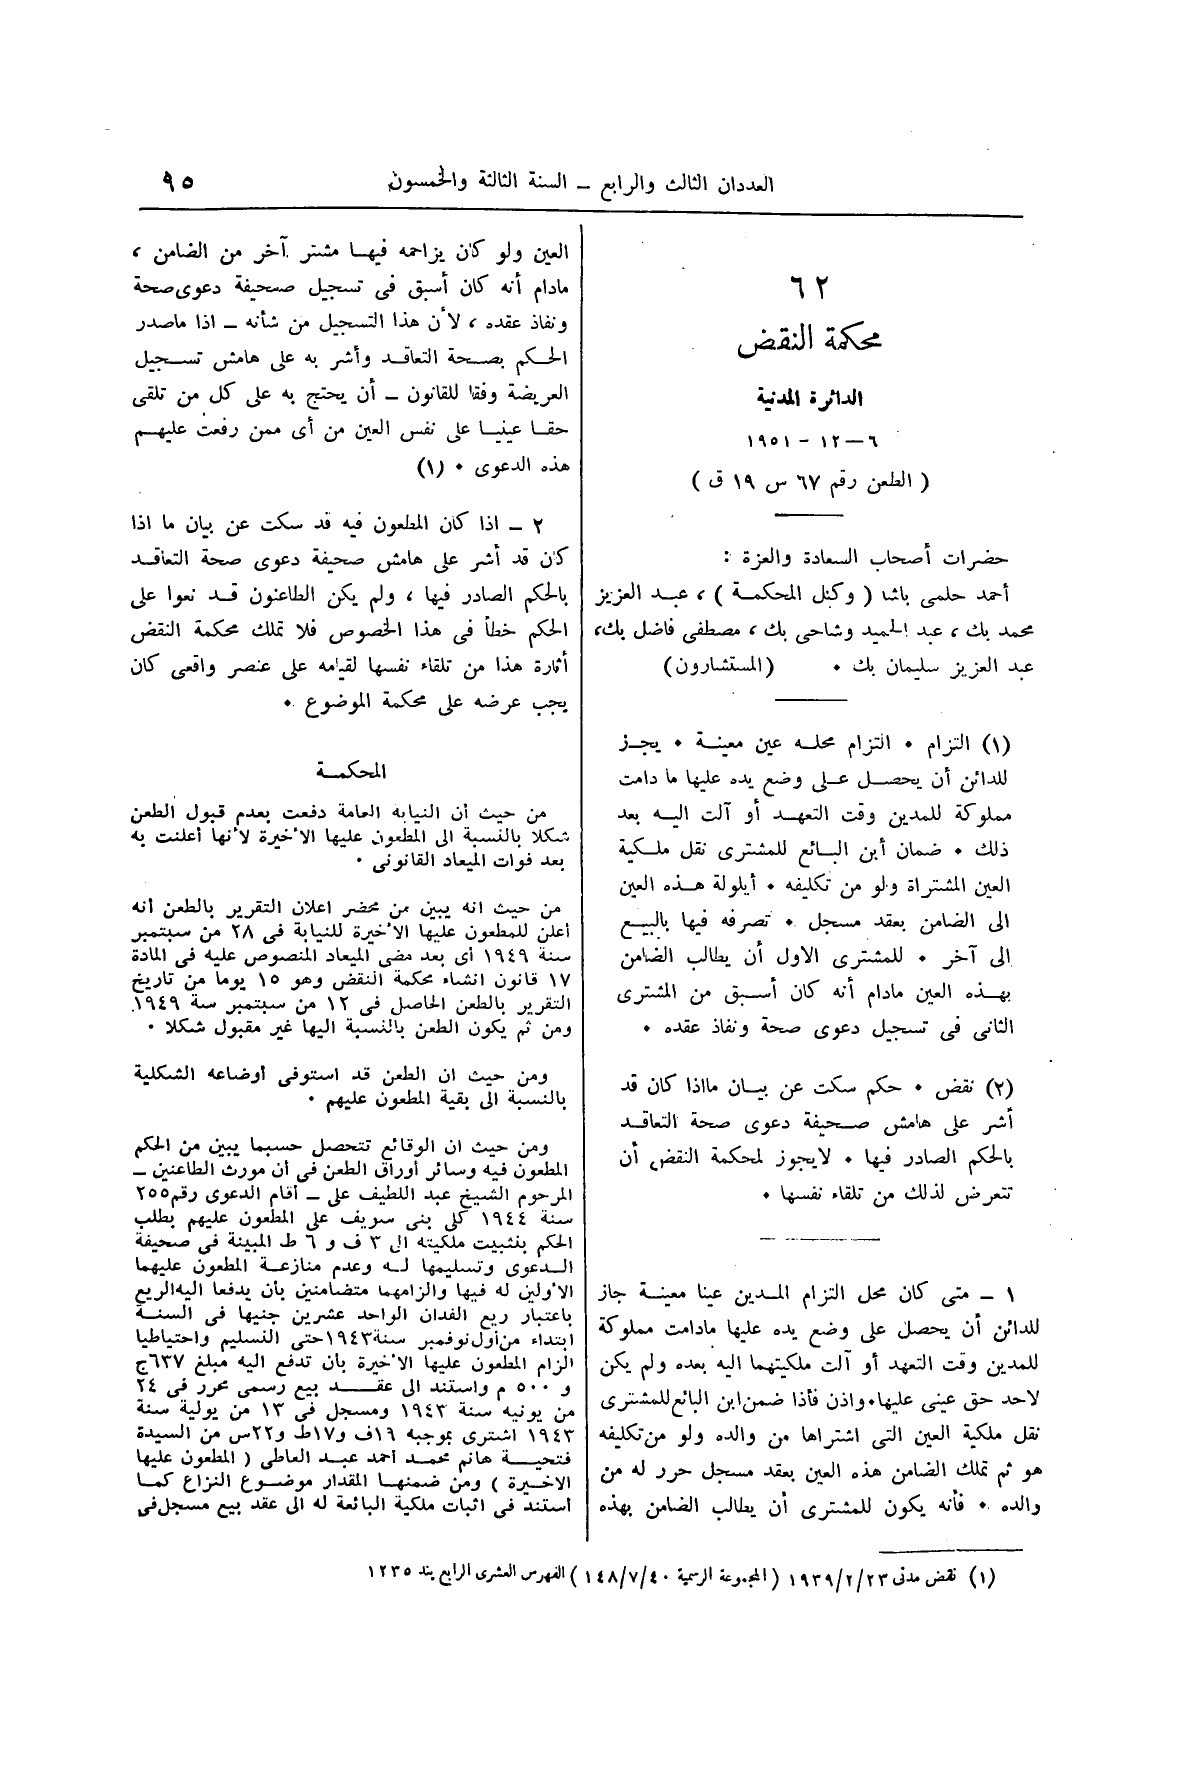 العددان الثالث والرابع – السنة الثالثة والخمسون
٩٥
٦٢
محكمة النقض
الدائرة المدنية
٦ – ١٢ – ١٩٥١
( الطعن رقم ٦٧ س ١٩ ق )
حضرات أصحاب السعادة والعزة :
أحمد حلمى باشا ( وكيل المحكمة ) ، عبد العزيز
محمد بك ، عبد الحميد وشاحى بك ، مصطفى فاضل بك،
عبد العزيز سليمان بك . (المستشارون)
(١) التزام . التزام محله عين معينة . يجز
للدائن أن يحصل على وضع يده عليها ما دامت
مملوكة للمدين وقت التعهد أو آلت اليه بعد
ذلك . ضمان أبن البائع للمشترى نقل ملكية
العين المشتراة ولو من تكليفه . أيلولة هذه العين
الى الضامن بعقد مسجل . تصرفه فيها بالبيع
الى آخر . للمشترى الاول أن يطالب الضامن
بهذه العين مادام أنه كان أسبق من المشترى
الثانى فى تسجيل دعوى صحة ونفاذ عقده .
(٢) نقض . حكم سكت عن بيان مااذا كان قد
أشر على هامش صحيفة دعوى صحة التعاقد
بالحكم الصادر فيها . لايجوز لمحكمة النقض أن
تتعرض لذلك من تلقاء نفسها .
١ – متى كان محل التزام المدين عينا معينة جاز
للدائن أن يحصل على وضع يده عليها مادامت مملوكة
للمدين وقت التعهد أو آلت ملكيتهما اليه بعده ولم يكن
لاحد حق عينى عليها. واذن فأذا ضمن ابن البائع للمشترى
نقل ملكية العين التى اشتراها من والده ولو من تكليفه
هو ثم تملك الضامن هذه العين بعقد مسجل حرر له من
والده . فأنه يكون للمشترى أن يطالب الضامن بهذه
العين ولو كان يزاحمه فيها مشتر آخر من الضامن ،
مادام أنه كان أسبق فى تسجيل صحيفة دعوى صحة
ونفاذ عقده ، لأن هذا التسجيل من شأنه – اذا ماصدر
الحكم بصحة التعاقد وأشر به على هامش تسجيل
العريضة وفقا للقانون – أن يحتج به على كل من تلقى
حقا عينيا على نفس العين من أى ممن رفعت عليهم
هذه الدعوى . (١)
٢ – اذا كان المطعون فيه قد سكت عن بيان ما اذا
كان قد أشر على هامش صحيفة دعوى صحة التعاقد
بالحكم الصادر فيها ، ولم يكن الطاعنون قد نعوا على
الحكم خطأ فى هذا الخصوص فلا تملك محكمة النقض
أثارة هذا من تلقاء نفسها لقيامه على عنصر واقعى كان
يجب عرضه على محكمة الموضوع .
المحكمة
من حيث أن النيابه العامة دفعت بعدم قبول الطعن
شكلا بالنسبة الى المطعون عليها الأخيرة لأنها أعلنت به
بعد فوات الميعاد القانونى .
من حيث انه يبين من محضر اعلان التقرير بالطعن أنه
أعلن للمطعون عليها الأخيرة للنيابة فى ٢٨ من سبتمبر
سنة ١٩٤٩ أى بعد مضى الميعاد المنصوص عليه فى المادة
١٧ قانون انشاء محكمة النقض وهو ١٥ يوما من تاريخ
التقرير بالطعن الحاصل فى ١٢ من سبتمبر سة ١٩٤٩.
ومن ثم يكون الطعن بالنسبة اليها غير مقبول شكلا .
ومن حيث ان الطعن قد استوفى أوضاعه الشكلية
بالنسبة الى بقية المطعون عليهم .
ومن حيث ان الوقائع تتحصل حسبما يبين من الحكم
المطعون فيه وسائر أوراق الطعن فى أن مورث الطاعنين –
المرحوم الشيخ عبد اللطيف على – أقام الدعوى رقم ٢٥٥
سنة ١٩٤٤ كلى بنى سويف على المطعون عليهم بطلب
الحكم بتثبيت ملكيته الى ٣ ف و ٦ ط المبينة فى صحيفة
الدعوى وتسليمها له وعدم منازعة المطعون عليهما
الأولين له فيها والزامهما متضامنين بأن يدفعا اليه الريع
باعتبار ريع الفدان الواحد عشرين جنيها فى السنة
ابتداء من أول نوفمبر سنة ١٩٤٣ حتى التسليم واحتياطيا
الزام المطعون عليها الأخيرة بان تدفع اليه مبلغ ٦٣٧ج
و ٥٠٠ م واستند الى عقد بيع رسمى محرر فى ٢٤
من يونيه سنة ١٩٤٣ ومسجل فى ١٣ من يولية سنة
١٩٤٣ اشترى بموجبه ١٩ف و١٧ط و٢٢س من السيدة
فتحية هانم محمد أحمد عبد العاطى ( المطعون عليها
الاخيرة ) ومن ضمنها المقدار موضوع النزاع كما
أستند فى اثبات ملكية البائعة له الى عقد بيع مسجل فى
(١) نقض مدنى ١٩٣٩/٢/٢٣ ( المجموعة الرسمية ١٤٨/٧/٤٠ ) الفهرس العشرى الرابع بند ١٢٣٥